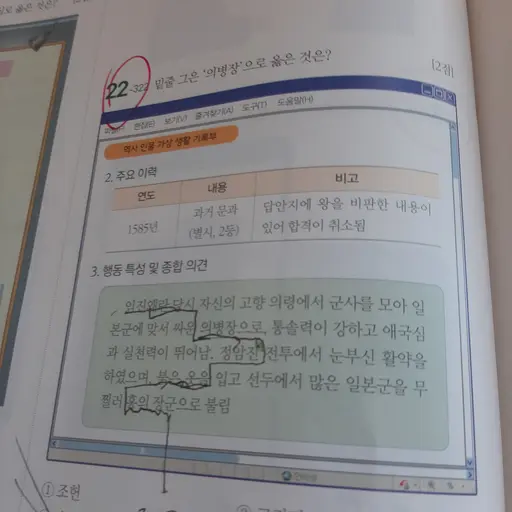 22-322 밑줄 그은 '의병장'으로 옳은 것은? [2점]
편집(E) 보기(V) 즐겨찾기(A) 도구(T) 도움말(H)
역사 인물 가상 생활 기록부
2. 주요 이력
연도 내용 비고
1585년 과거 문과 (별시, 2등) 답안지에 왕을 비판한 내용이 있어 합격이 취소됨
3. 행동 특성 및 종합 의견
임진왜란 당시 자신의 고향 의령에서 군사를 모아 일
본군에 맞서 싸운 의병장으로, 통솔력이 강하고 애국심
과 실천력이 뛰어남. 정암진 전투에서 눈부신 활약을
하였으며, 붉은 옷을 입고 선두에서 많은 일본군을 무
찔러 홍의 장군으로 불림
① 조헌